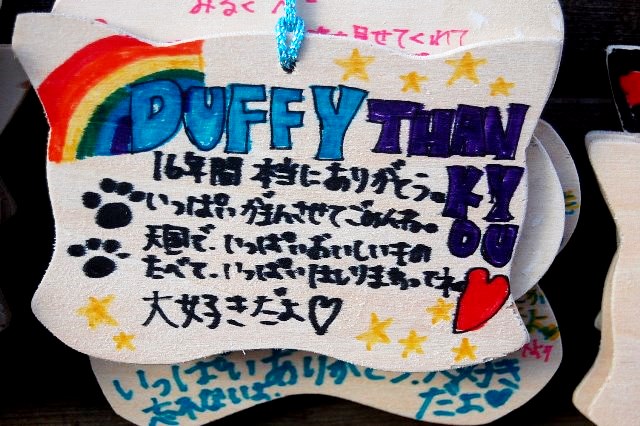 みるくへ
見せてくれて
DUFFY THAN
KY
OU
16年間 本当にありがとう。
いっぱい がまんさせてごめんね。
天国で、いっぱいおいしいもの
たべて、いっぱいはしりまわってネ。
大好きだよ♡
いっぱいありがとう。大好き
だよ♥
忘れないよ。